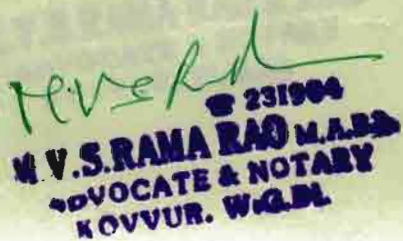 M V S R
☎ 231904
M.V.S.RAMA RAO M.A.B.L
ADVOCATE & NOTARY
KOVVUR. W.G.Dt.